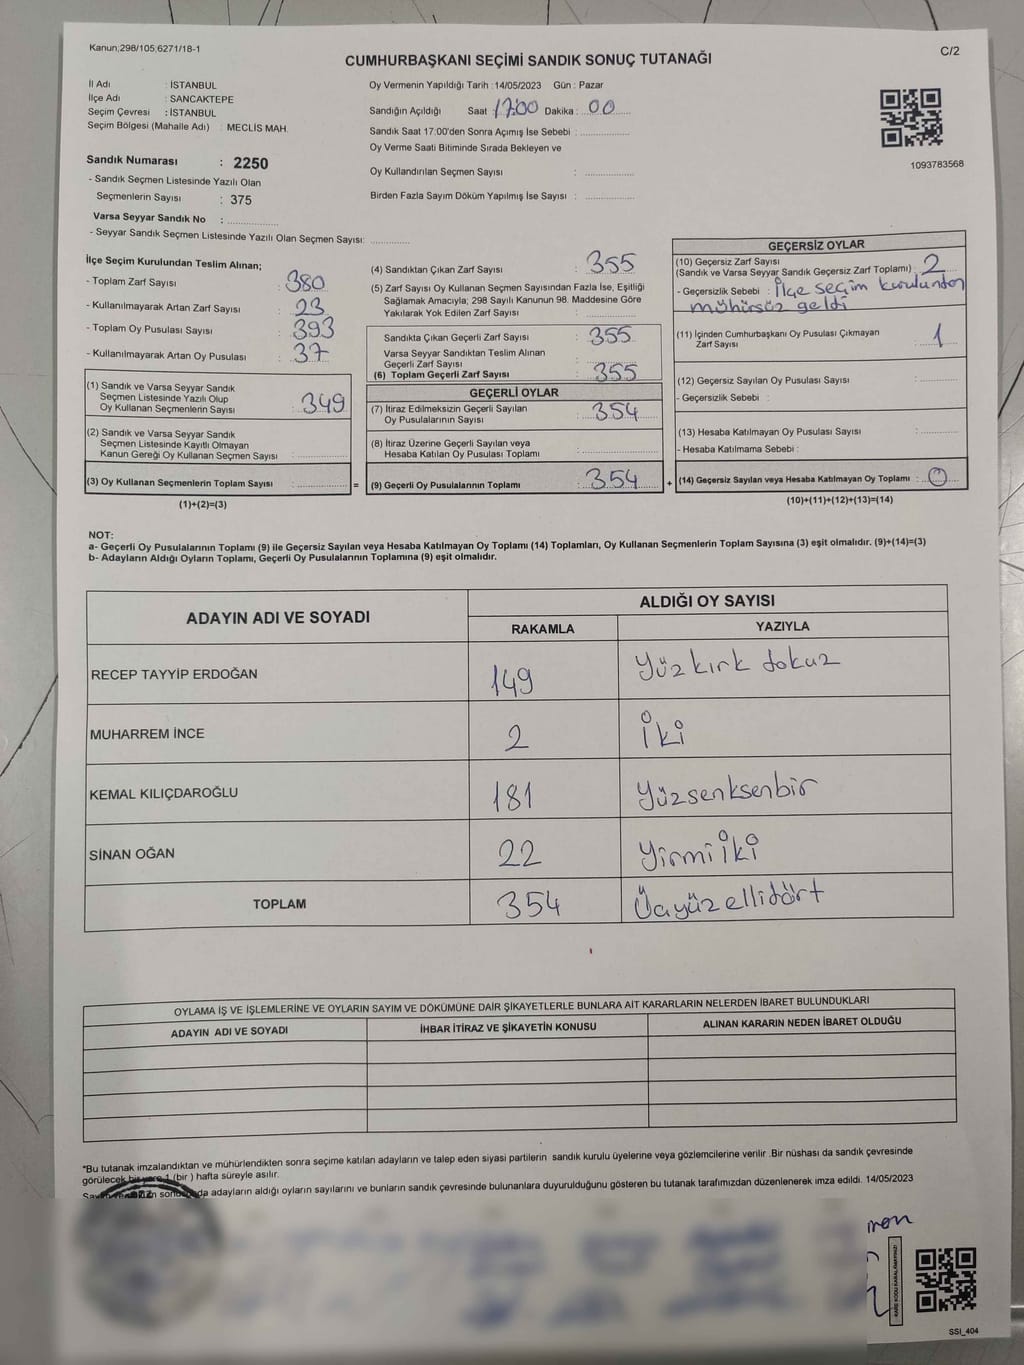 Kanun;298/105;6271/18-1
C/2
CUMHURBAŞKANI SEÇİMİ SANDIK SONUÇ TUTANAĞI
İl Adı : İSTANBUL
İlçe Adı : SANCAKTEPE
Seçim Çevresi : İSTANBUL
Seçim Bölgesi (Mahalle Adı) : MECLİS MAH.
Sandık Numarası : 2250
- Sandık Seçmen Listesinde Yazılı Olan
Seçmenlerin Sayısı : 375
Varsa Seyyar Sandık No : ..............
- Seyyar Sandık Seçmen Listesinde Yazılı Olan Seçmen Sayısı: ............
Oy Vermenin Yapıldığı Tarih : 14/05/2023 Gün : Pazar
Sandığın Açıldığı Saat : 17:00 Dakika : 00
Sandık Saat 17:00'den Sonra Açımış İse Sebebi : ..............
Oy Verme Saati Bitiminde Sırada Bekleyen ve
Oy Kullandırılan Seçmen Sayısı : ..............
Birden Fazla Sayım Döküm Yapılmış İse Sayısı : ..............
1093783568
İlçe Seçim Kurulundan Teslim Alınan;
- Toplam Zarf Sayısı : 380
- Kullanılmayarak Artan Zarf Sayısı : 23
- Toplam Oy Pusulası Sayısı : 393
- Kullanılmayarak Artan Oy Pusulası : 37
(1) Sandık ve Varsa Seyyar Sandık
Seçmen Listesinde Yazılı Olup
Oy Kullanan Seçmenlerin Sayısı : 349
(2) Sandık ve Varsa Seyyar Sandık
Seçmen Listesinde Kayıtlı Olmayan
Kanun Gereği Oy Kullanan Seçmen Sayısı : ..............
(3) Oy Kullanan Seçmenlerin Toplam Sayısı : .............. =
(1)+(2)=(3)
(4) Sandıktan Çıkan Zarf Sayısı : 355
(5) Zarf Sayısı Oy Kullanan Seçmen Sayısından Fazla İse, Eşitliği
Sağlamak Amacıyla; 298 Sayılı Kanunun 98. Maddesine Göre
Yakılarak Yok Edilen Zarf Sayısı : ..............
Sandıkta Çıkan Geçerli Zarf Sayısı : 355
Varsa Seyyar Sandıktan Teslim Alınan
Geçerli Zarf Sayısı : ..............
(6) Toplam Geçerli Zarf Sayısı : 355
GEÇERLİ OYLAR
(7) İtiraz Edilmeksizin Geçerli Sayılan
Oy Pusulalarının Sayısı : 354
(8) İtiraz Üzerine Geçerli Sayılan veya
Hesaba Katılan Oy Pusulası Toplamı : ..............
(9) Geçerli Oy Pusulalarının Toplamı : 354 +
GEÇERSİZ OYLAR
(10) Geçersiz Zarf Sayısı
(Sandık ve Varsa Seyyar Sandık Geçersiz Zarf Toplamı) : 2
- Geçersizlik Sebebi : İlçe seçim kurulundan
mühürsüz geldi
(11) İçinden Cumhurbaşkanı Oy Pusulası Çıkmayan
Zarf Sayısı : 1
(12) Geçersiz Sayılan Oy Pusulası Sayısı : ............
- Geçersizlik Sebebi :
(13) Hesaba Katılmayan Oy Pusulası Sayısı : ............
- Hesaba Katılmama Sebebi :
(14) Geçersiz Sayılan veya Hesaba Katılmayan Oy Toplamı : 0
(10)+(11)+(12)+(13)=(14)
NOT:
a- Geçerli Oy Pusulalarının Toplamı (9) ile Geçersiz Sayılan veya Hesaba Katılmayan Oy Toplamı (14) Toplamları, Oy Kullanan Seçmenlerin Toplam Sayısına (3) eşit olmalıdır. (9)+(14)=(3)
b- Adayların Aldığı Oyların Toplamı, Geçerli Oy Pusulalarının Toplamına (9) eşit olmalıdır.
ADAYIN ADI VE SOYADI ALDIĞI OY SAYISI
RAKAMLA YAZIYLA
RECEP TAYYİP ERDOĞAN 149 Yüz kırk dokuz
MUHARREM İNCE 2 İki
KEMAL KILIÇDAROĞLU 181 Yüzsenksenbir
SİNAN OĞAN 22 Yirmiiki
TOPLAM 354 Üçyüzellidört
OYLAMA İŞ VE İŞLEMLERİNE VE OYLARIN SAYIM VE DÖKÜMÜNE DAİR ŞİKAYETLERLE BUNLARA AİT KARARLARIN NELERDEN İBARET BULUNDUKLARI
ADAYIN ADI VE SOYADI İHBAR İTİRAZ VE ŞİKAYETİN KONUSU ALINAN KARARIN NEDEN İBARET OLDUĞU
*Bu tutanak imzalandıktan ve mühürlendikten sonra seçime katılan adayların ve talep eden siyasi partilerin sandık kurulu üyelerine veya gözlemcilerine verilir .Bir nüshası da sandık çevresinde
görülecek bir yere 1 (bir ) hafta süreyle asılır.
adayların aldığı oyların sayılarını ve bunların sandık çevresinde bulunanlara duyurulduğunu gösteren bu tutanak tarafımızdan düzenlenerek imza edildi. 14/05/2023
SSI_404